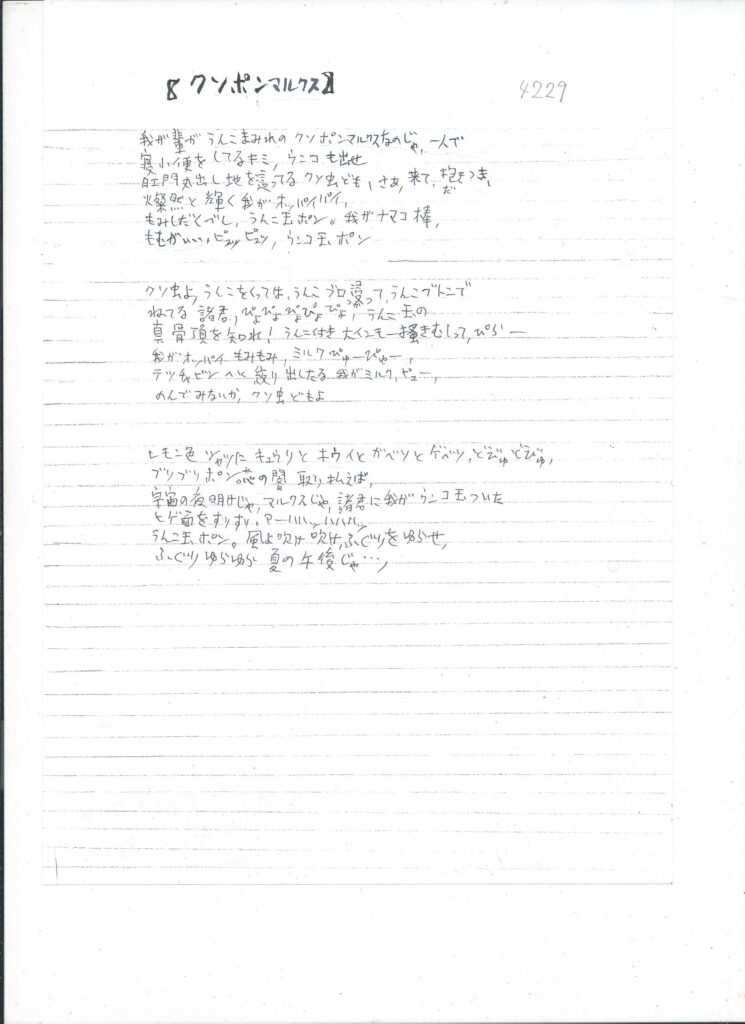 【クソポンマルクス】
4229
我が輩がうんこまみれのクソポンマルクスなのじゃ、一人で
寝小便をしてるキミ、ウンコも出せ
肛門丸出し地を這ってるクソ虫ども、さあ、来て、抱きつき、
だ
燦然と輝く我がオッパイパイ、
もみしだくべし、うんこ玉ポン。我がナマコ棒、
もむがいい、ピュッピュッ、ウンコ玉ポン
クソ虫よ、うんこをくっては、うんこブロ浸って、うんこブトンで
っか
ねてる諸君、ぴょぴょぴょぴょぴょ、うんこ玉の
真骨頂を知れ!うんこ付き大インモー掻きむしって、ぴらー
我がオッパイもみもみ、ミルクぴゅーぴゅー、
テツ ビンへと絞り出したる我がミルク、ピュー、
のんでみないか、クソ虫どもよ
レモン色シャツにキュウリとホウイとガベソとゲベソ、どぴゅどぴゅ、
ブリブリポン。芯の闇取り払えば、
宇宙の夜明けじゃ、マルクスじゃ、諸君に我がウンコ玉ついた
ヒゲ面をすりすり。アーハハッ、ハハハハッ
うんこ玉ポン。風よ吹け吹け、ふぐりをゆらせ、
ふぐりゆらゆら夏の午後じゃ…、